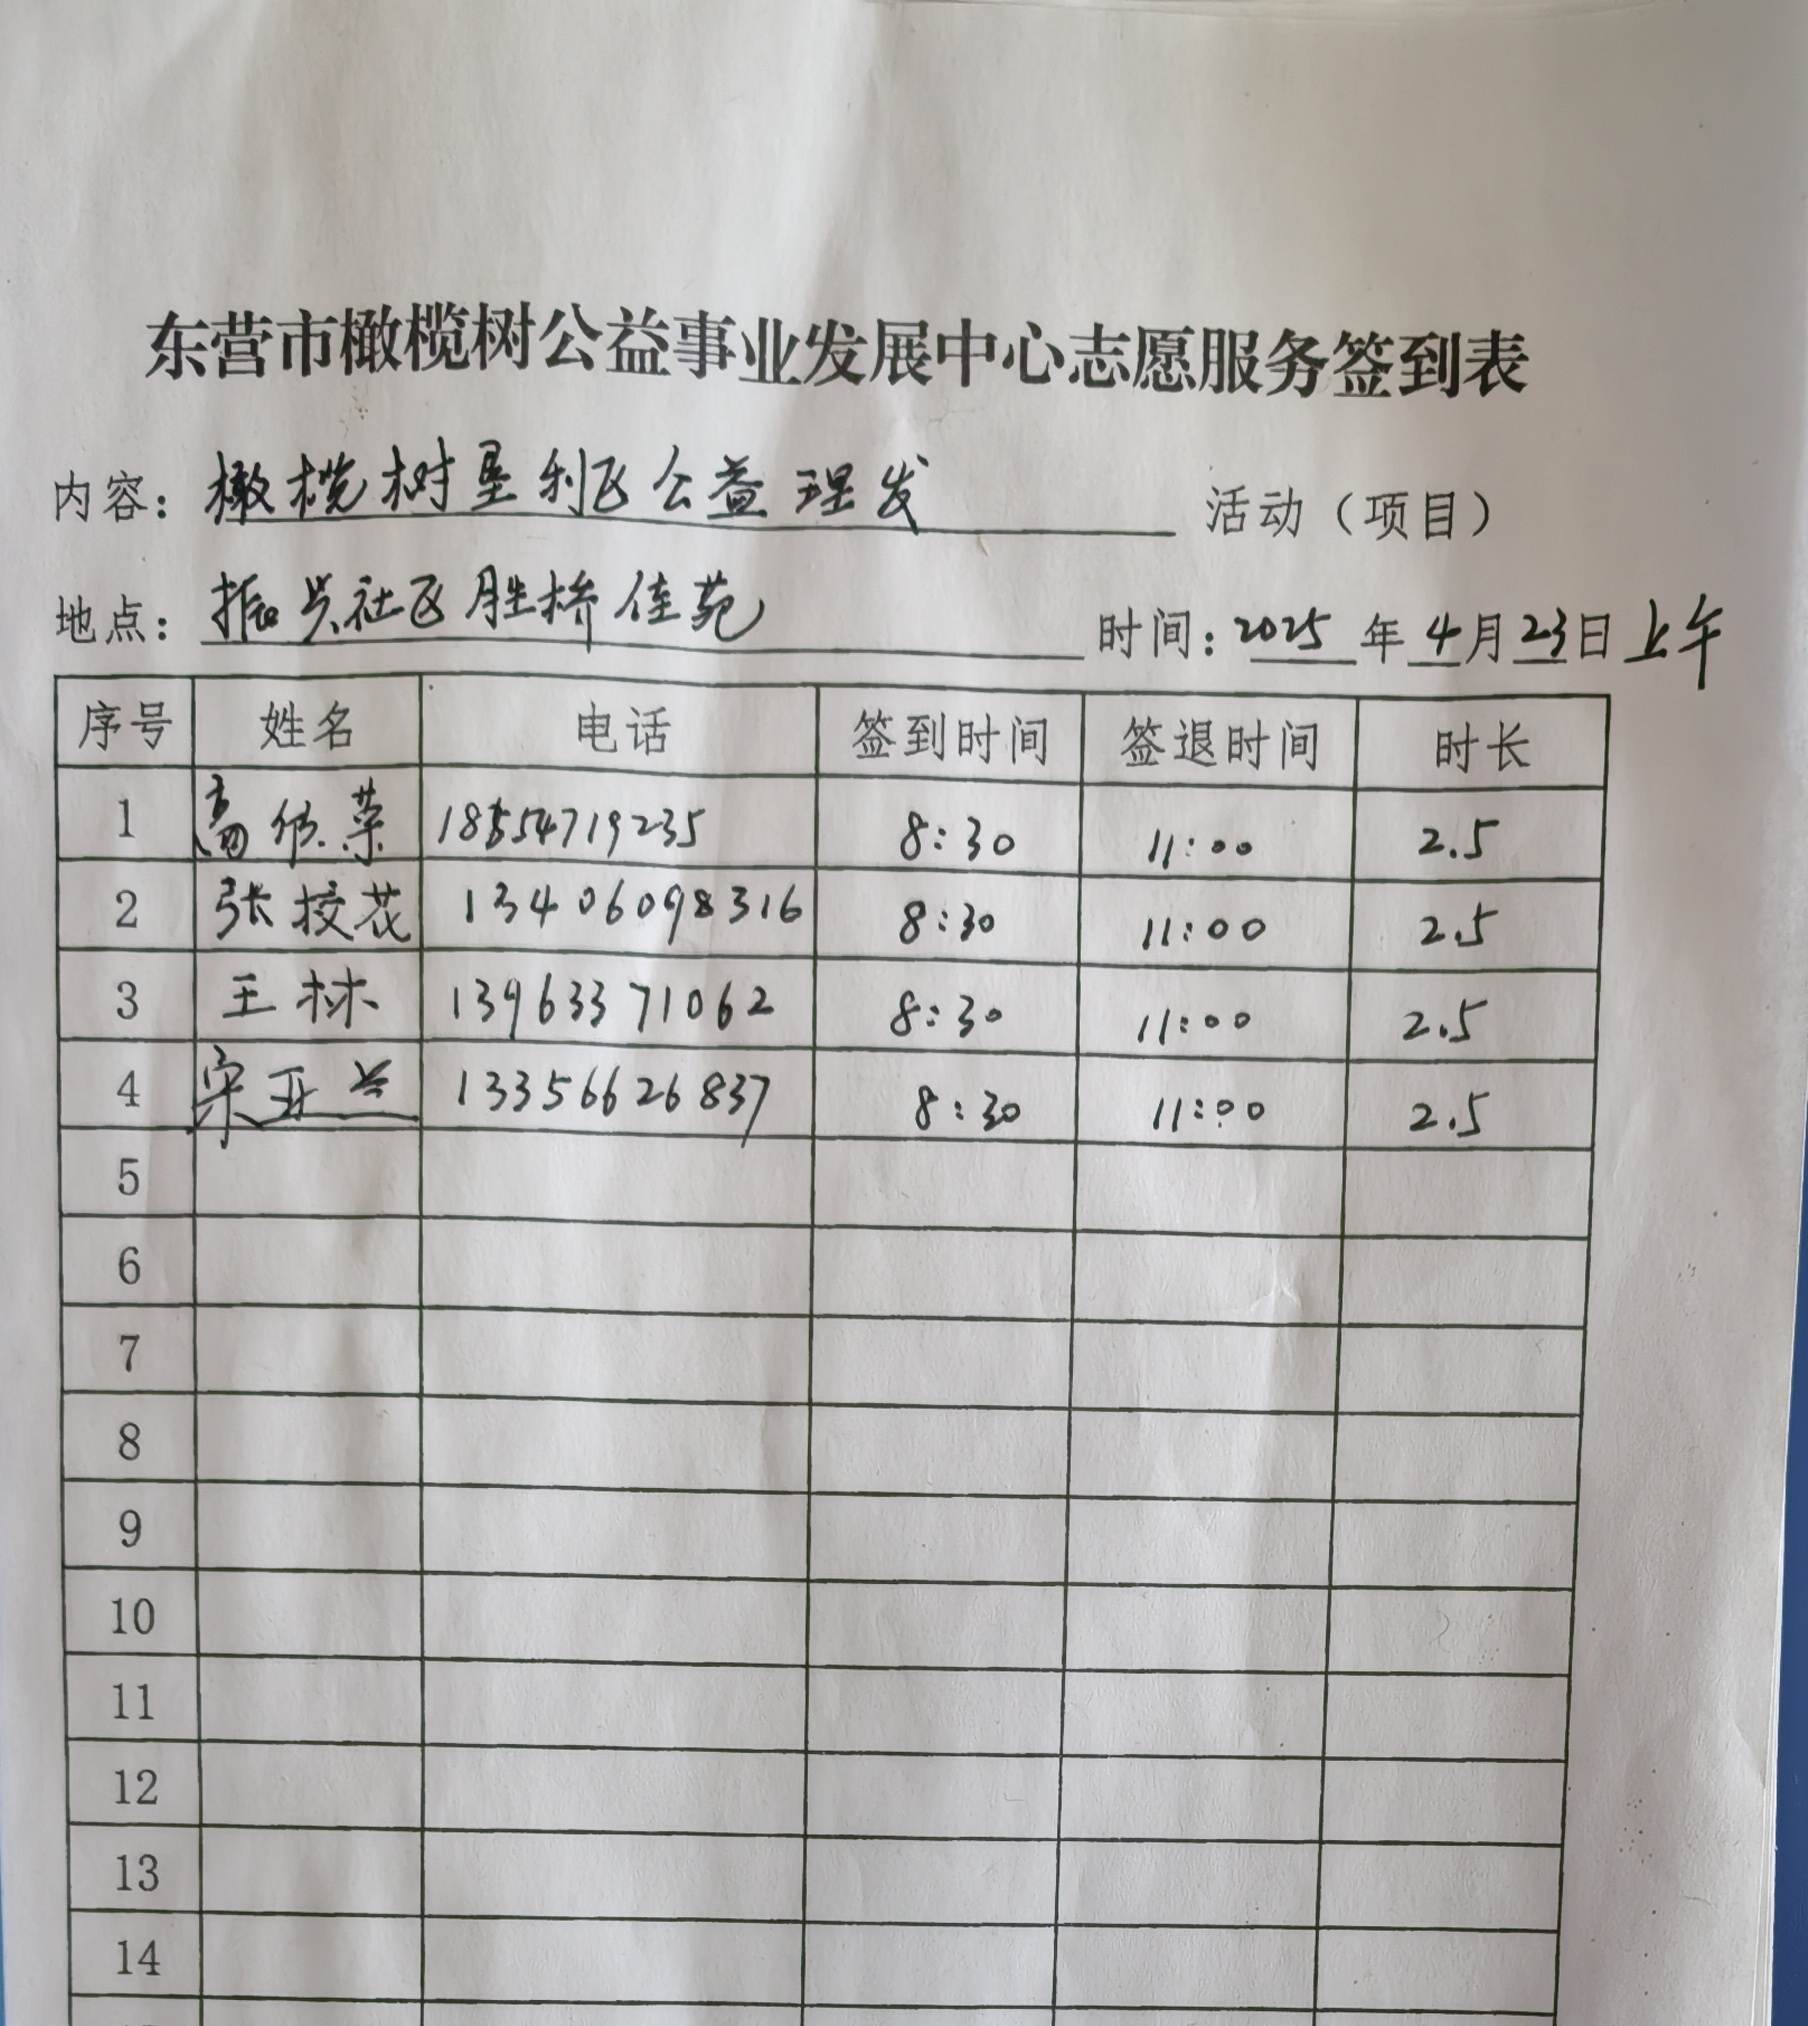 东营市橄榄树公益事业发展中心志愿服务签到表
内容：橄榄树垦利区公益理发 活动（项目）
地点：振兴社区胜桥佳苑 时间：2025年4月23日上午
序号 姓名 电话 签到时间 签退时间 时长
1 高欣荣 18554719235 8:30 11:00 2.5
2 张校花 13406098316 8:30 11:00 2.5
3 王林 13963371062 8:30 11:00 2.5
4 宋亚兰 13356626837 8:30 11:00 2.5
5
6
7
8
9
10
11
12
13
14